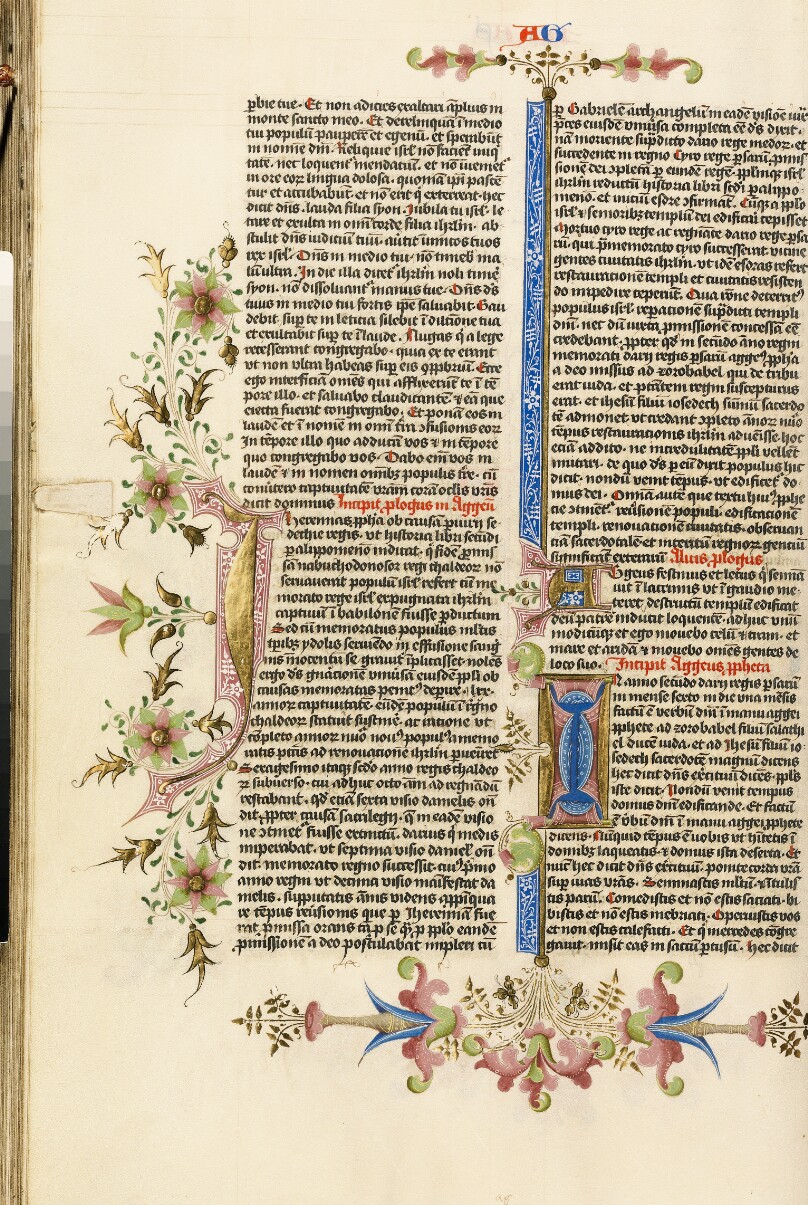 AG
pbie tue. Et non adicies exaltari ãplius in
monte sancto meo. Et derelinquã ĩ medio
tui populũ pauperẽ et egenũ. et sperabũt
in nomine dñi. Reliquie isrl' nõ faciẽt iniq̃
tatẽ. nec loquent' mendatiũ. et nõ ĩuẽniet'
in ore eoꝝ lingua dolosa. quoniã ip̃i pascẽ
tur et accubabũt. et nõ erit q̃ exterreat. hec
dicit dñs. lauda filia syon. Iubila tu isrl'. le
tare et exulta in om̃i corde filia ihrl̃m. ab
stulit dñs iudiciũ tuũ. aũtit inimicos tuos
rex isrl'. Dñs in medio tui. nõ timeb' ma
lũ ultra. In die illa dicet' ihrl̃m noli timẽ
syon. nõ dissoluant' manus tue. Dñs d's
tuus in medio tui fortis ip̃e saluabit. Gau
debit sup̃ te in leticia silebit ĩ dilctione tua
et exultabit sup̃ te ĩ laude. Nugas q̃ a lege
recesserant congregabo. quia ex te erant
ut non ultra habeas sup̃ eis opp̃briũ. Ecce
ego interficiã om̃es qui afflixerũt te ĩ tẽ
pore illo. et saluabo claudicantẽ. et eã que
eiecta fuerat congregabo. Et ponã eos in
laudẽ et ĩ nomẽ in om̃i t̃ra ꝯfusionis eoꝝ
In tẽpore illo quo adducã vos et in tẽpore
quo congregabo vos. Dabo em̃ vos in
laudẽ et in nomen om̃ibꝫ populis t̃re. cũ
conũtero captiuitatẽ vrãm corã oclis vr̃is
dicit dominus Incipit ꝓlogus in Aggeũ
Iheremias ꝓpha ob causã ꝑiurii se-
dechie regis. ut historia libri secũdi
paralippomenõ indicat. q̃ fidẽ ꝓmis
sã nabuchodonosor regi chaldeoꝝ nõ
seruauerat populũ isrl' refert cũ me
morato rege isrl' expugnata ihrl̃m
captiuũ ĩ babilonẽ fuisse ꝑductum
Sed cũ memoratus populus mltis
tp̃ibꝫ ydolis seruiẽdo in effusione sang
nis ĩnocentũ se grauit' ĩplicasset. nolẽs
ergo d's gñationẽ vniũsã eiusdẽ ppl̃i ob
causas memoratas penit' depire. lxx.
annoꝝ captiuitatẽ eũdẽ populũ ĩ regno
chaldeoꝝ statuit sustinẽ. ac ratione ut
cõpleto annoꝝ nũo nou' popul' a memo
ratis pctĩs ad renouationẽ ihrl̃m ꝑueũret
Sexagesimo itaqꝫ scdo anno regni chaldeo
ꝝ subuerso. cui adhuc octo ãni ad regnãdũ
restabant. qd' etiã sexta visio danielis oñ
dit. ꝓpter causã sacrilegii. q̃ in eadẽ visio
ne ꝯtinet' fuisse extinctũ. darius q̃ medis
imperabat. ut septima visio daniel' oñ
dit. memorato regno successit. cui' p̃mo
anno regni ut decima visio mãifestat da
nielis. supputatis ãnis videns appĩqua
re tẽpus reũsionis que p̃ Iheremiã fue
rat ꝓmissa orans tã p̃ se q̃ꝫ p̃ pplo eandẽ
ꝓmissionẽ a deo postulabat impleri cũ
p̃ Gabrielẽ archangelũ in eadẽ visiõe
ptes eiusdẽ vniũsa completa eẽ d's dixit.
nã moriente sup̃dicto dario rege medoꝝ. et
succedente in regno Cyro rege persaꝝ. ꝓmis
sionẽ dei ꝯpletã p̃ eundẽ regẽ. ppl̃mqꝫ isrl'
ihrl̃m reductũ historia libri scdi paralippo
menõ. et iniciũ esdre ꝯfirmat. Cũqꝫ a pplo
isrl' et semoribꝫ templũ dei edificari cepisset
Mortuo cyro rege ac regnãte dario rege psa
rũ. qui p̃memorato cyro successerat. vicine
gentes ciuitatis ihrl̃m. ut idẽ esdras refert
restaurationẽ templi et ciuitatis resisten
do impedire ceperũt. Qua rõne deterrit'
populus isrl' repationẽ sup̃dicti templi
dñi. nec dũ iuxta ꝓmissionẽ concessã eẽ
credebant. ꝓpter qd' in secũdo ãno regni
memorati darii regis psarũ agge' ꝓpha
a deo missus ad zorobabel qui de tribu
erat iuda. et p̃ncipatẽ regni susceptur'
erat. et ihesũ filiũ iosedech sũmũ sacerdo
tẽ admonet. ut credant ꝯpleto ãnoꝝ nũo
tẽpus restaurationis ihrl̃m aduẽisse. hoc
etiã addito. ne incredulitatẽ ppli vellẽt
imitari. de quo d's p̃ eũ dicit. populus hic
dicit. nondũ venit tẽpus. ut edificet' do
mus dei. Omnia autẽ que tertiu hui' ꝓphe
tie ꝯtinẽt'. reũsionẽ populi. edificationẽ
templi. renouationẽ ciuitatis. obseruan
tiã sacerdotalẽ et interitũ regnoꝝ gentiũ
significãt externaꝝ. Alius ꝓlogus
Aggeus festiuus et letus. q̃ semia
uit ĩ lacrimis ut ĩ gaudio me-
teret. destructũ templũ edificat
deũ patrẽ inducit loquentẽ. adhuc unũ
modicũqꝫ et ego mouebo celũ et terram. et
mare et aridã. et mouebo om̃es gentes de
loco suo. Incipit Aggeus ꝓpheta
In anno secũdo darij regis psarũ
in mense sexto in die vna mẽsis
factũ ẽ verbũ dñi ĩ manu aggei
ꝓphete ad zorobabel filiũ salathi
el ducẽ iuda. et ad Ihesũ filiũ io-
sedech sacerdotẽ magnũ dicens
hec dicit dñs exercituũ dicẽs. ppl's
iste dicit. Nondũ venit tempus
domus dñi edificande. Et factũ
ẽ verbũ dñi ĩ manu aggei ꝓphete
dicens. Nũquid tẽpus ẽ uobis ut hĩtetis ĩ
domibꝫ laqueatis. et domus ista deserta. Et
nũc hec dicit dñs exercituũ. ponite corda vrã
sup̃ uias vrãs. Seminastis mltũ. et ĩtulis
tis parũ. Comedistis et nõ estis saciati. bi
bistis et nõ estis inebriati. Operuistis vos
et non estis calefacti. Et q̃ mercedes cõgre
gauit. misit eas in saccũ ptusũ. Hec dicit